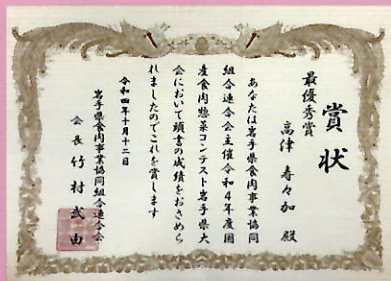 賞状
最優秀賞
高津 寿々加 殿
あなたは岩手県食肉事業協同
組合連合会主催令和4年度国
産食肉惣菜コンテスト岩手県大
会において頭書の成績をおさめら
れましたのでこれを賞します
令和四年十月十二日
岩手県食肉事業協同組合連合会
会長 竹村武由